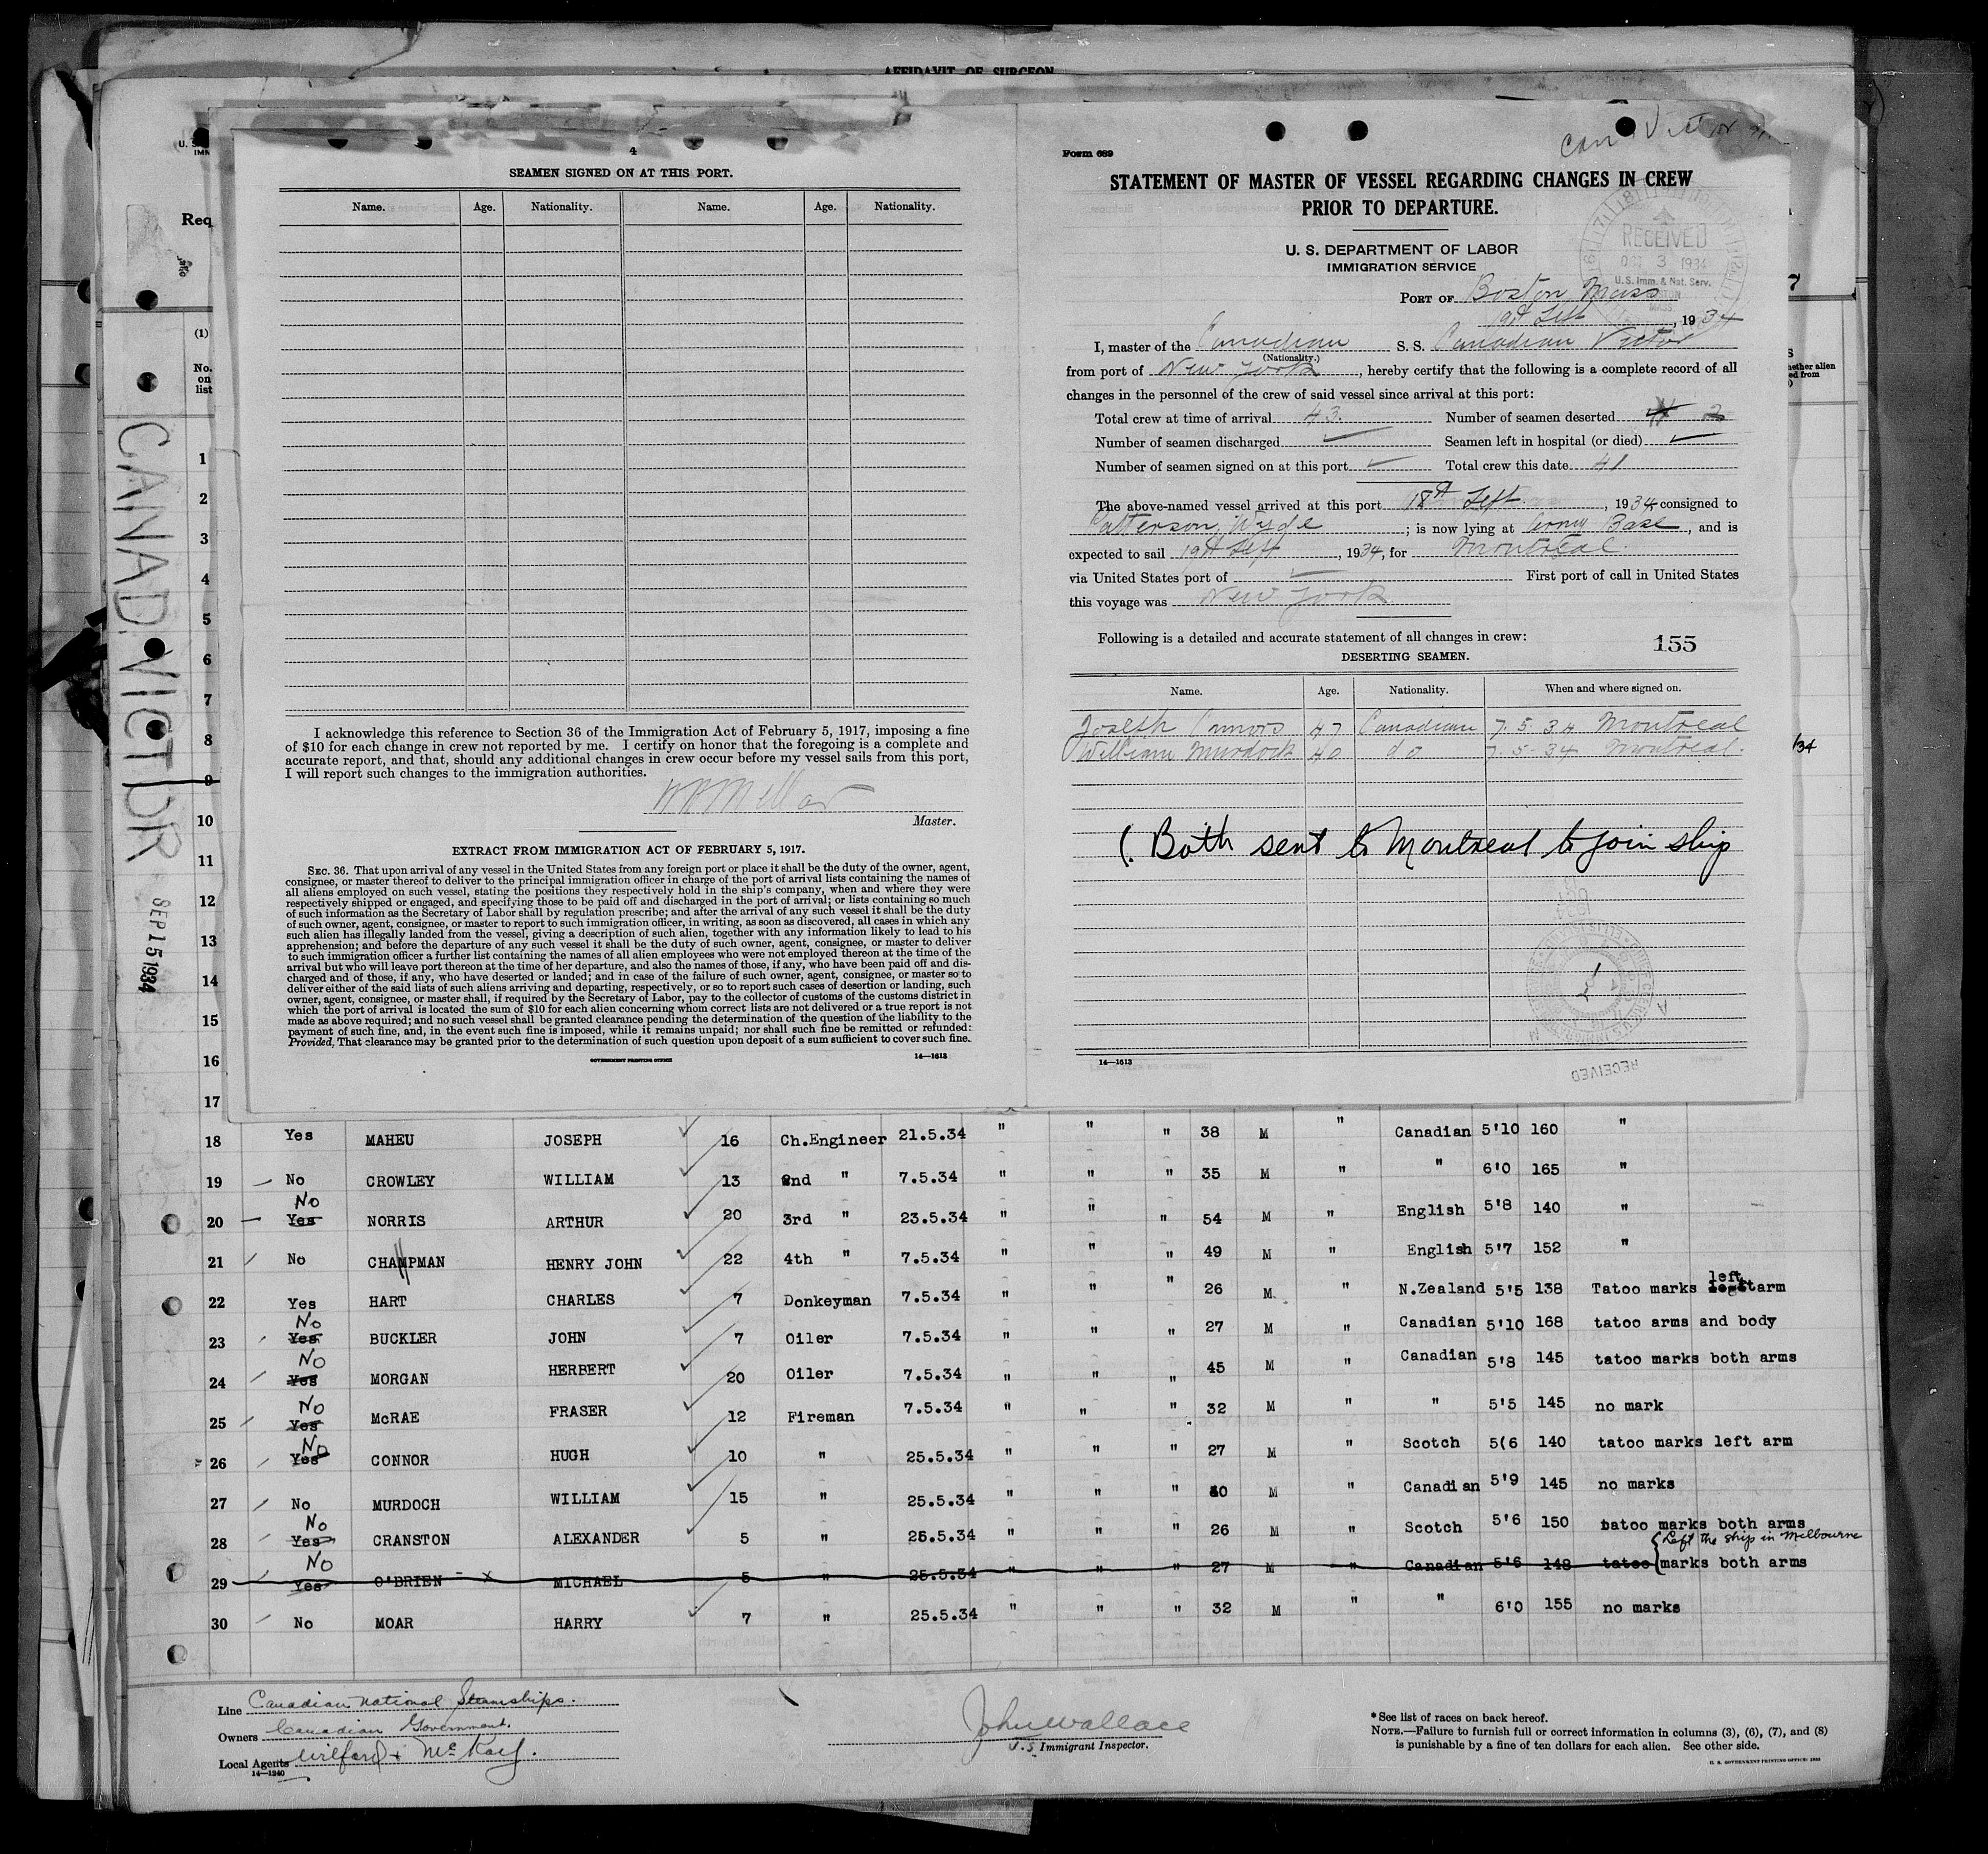 AFFIDAVIT OF SURGEON
4
SEAMEN SIGNED ON AT THIS PORT.
Name. Age. Nationality. Name. Age. Nationality.
I acknowledge this reference to Section 36 of the Immigration Act of February 5, 1917, imposing a fine
of $10 for each change in crew not reported by me. I certify on honor that the foregoing is a complete and
accurate report, and that, should any additional changes in crew occur before my vessel sails from this port,
I will report such changes to the immigration authorities.
Master.
EXTRACT FROM IMMIGRATION ACT OF FEBRUARY 5, 1917.
SEC. 36. That upon arrival of any vessel in the United States from any foreign port or place it shall be the duty of the owner, agent,
consignee, or master thereof to deliver to the principal immigration officer in charge of the port of arrival lists containing the names of
all aliens employed on such vessel, stating the positions they respectively hold in the ship's company, when and where they were
respectively shipped or engaged, and specifying those to be paid off and discharged in the port of arrival; or lists containing so much
of such information as the Secretary of Labor shall by regulation prescribe; and after the arrival of any such vessel it shall be the duty
of such owner, agent, consignee, or master to report to such immigration officer, in writing, as soon as discovered, all cases in which any
such alien has illegally landed from the vessel, giving a description of such alien, together with any information likely to lead to his
apprehension; and before the departure of any such vessel it shall be the duty of such owner, agent, consignee, or master to deliver
to such immigration officer a further list containing the names of all alien employees who were not employed thereon at the time of the
arrival but who will leave port thereon at the time of her departure, and also the names of those, if any, who have been paid off and dis-
charged and of those, if any, who have deserted or landed; and in case of the failure of such owner, agent, consignee, or master so to
deliver either of the said lists of such aliens arriving and departing, respectively, or so to report such cases of desertion or landing, such
owner, agent, consignee, or master shall, if required by the Secretary of Labor, pay to the collector of customs of the customs district in
which the port of arrival is located the sum of $10 for each alien concerning whom correct lists are not delivered or a true report is not
made as above required; and no such vessel shall be granted clearance pending the determination of the question of the liability to the
payment of such fine, and, in the event such fine is imposed, while it remains unpaid; nor shall such fine be remitted or refunded:
Provided, That clearance may be granted prior to the determination of such question upon deposit of a sum sufficient to cover such fine.
GOVERNMENT PRINTING OFFICE 14—1613
Form 689
STATEMENT OF MASTER OF VESSEL REGARDING CHANGES IN CREW
PRIOR TO DEPARTURE.
U. S. DEPARTMENT OF LABOR
IMMIGRATION SERVICE
RECEIVED
3 1934
U.S. Imm. & Nat. Serv.
PORT OF Boston Mass
19th Sept, 1934
I, master of the Canadian S. S. Canadian Victor
(Nationality.)
from port of New York, hereby certify that the following is a complete record of all
changes in the personnel of the crew of said vessel since arrival at this port:
Total crew at time of arrival 43. Number of seamen deserted 2
Number of seamen discharged Seamen left in hospital (or died)
Number of seamen signed on at this port Total crew this date 41
The above-named vessel arrived at this port 18th Sept., 1934 consigned to
Patterson, Wylde; is now lying at Army Base, and is
expected to sail 19th Sept, 1934, for Montreal.
via United States port of First port of call in United States
this voyage was New York
Following is a detailed and accurate statement of all changes in crew: 155
DESERTING SEAMEN.
Name. Age. Nationality. When and where signed on.
Joseph Connors 47 Canadian 7.5.34 Montreal
William Murdock 40 do 7.5-34 Montreal.
(. Both sent to Montreal to join ship
RECEIVED
14—1613
CANAD. VICTOR
SEP 15 1934
Req
(1)
No.
on
list
1
2
3
4
5
6
7
8
9
10
11
12
13
14
15
16
17
18 Yes MAHEU JOSEPH 16 Ch.Engineer 21.5.34 " " " 38 M " Canadian 5'10 160 "
19 No CROWLEY WILLIAM 13 2nd " 7.5.34 " " " 35 M " " 6'0 165 "
20 No Yes NORRIS ARTHUR 20 3rd " 23.5.34 " " " 54 M " English 5'8 140 "
21 No CHAPMAN HENRY JOHN 22 4th " 7.5.34 " " " 49 M " English 5'7 152 "
22 Yes HART CHARLES 7 Donkeyman 7.5.34 " " " 26 M " N.Zealand 5'5 138 Tatoo marks left arm
23 No Yes BUCKLER JOHN 7 Oiler 7.5.34 " " " 27 M " Canadian 5'10 168 tatoo arms and body
24 No Yes MORGAN HERBERT 20 Oiler 7.5.34 " " " 45 M " Canadian 5'8 145 tatoo marks both arms
25 No Yes McRAE FRASER 12 Fireman 7.5.34 " " " 32 M " " 5'5 145 no mark
26 No Yes CONNOR HUGH 10 " 25.5.34 " " " 27 M " Scotch 5(6 140 tatoo marks left arm
27 No MURDOCH WILLIAM 15 " 25.5.34 " " " 40 M " Canadian 5'9 145 no marks
28 No Yes CRANSTON ALEXANDER 5 " 25.5.34 " " " 26 M " Scotch 5'6 150 tatoo marks both arms
{Left the ship in Melbourne
29 No Yes O'BRIEN - x MICHAEL 5 " 25.5.34 " " " 27 M " Canadian 5'6 148 tatoo marks both arms
30 No MOAR HARRY 7 " 25.5.34 " " " 32 M " " 6'0 155 no marks
Line Canadian National Steamships.
Owners Canadian Government.
Local Agents Wilford & McKay.
14—1240
John Wallace
U.S. Immigrant Inspector.
* See list of races on back hereof.
NOTE.—Failure to furnish full or correct information in columns (3), (6), (7), and (8)
is punishable by a fine of ten dollars for each alien. See other side.
U. S. GOVERNMENT PRINTING OFFICE: 1933